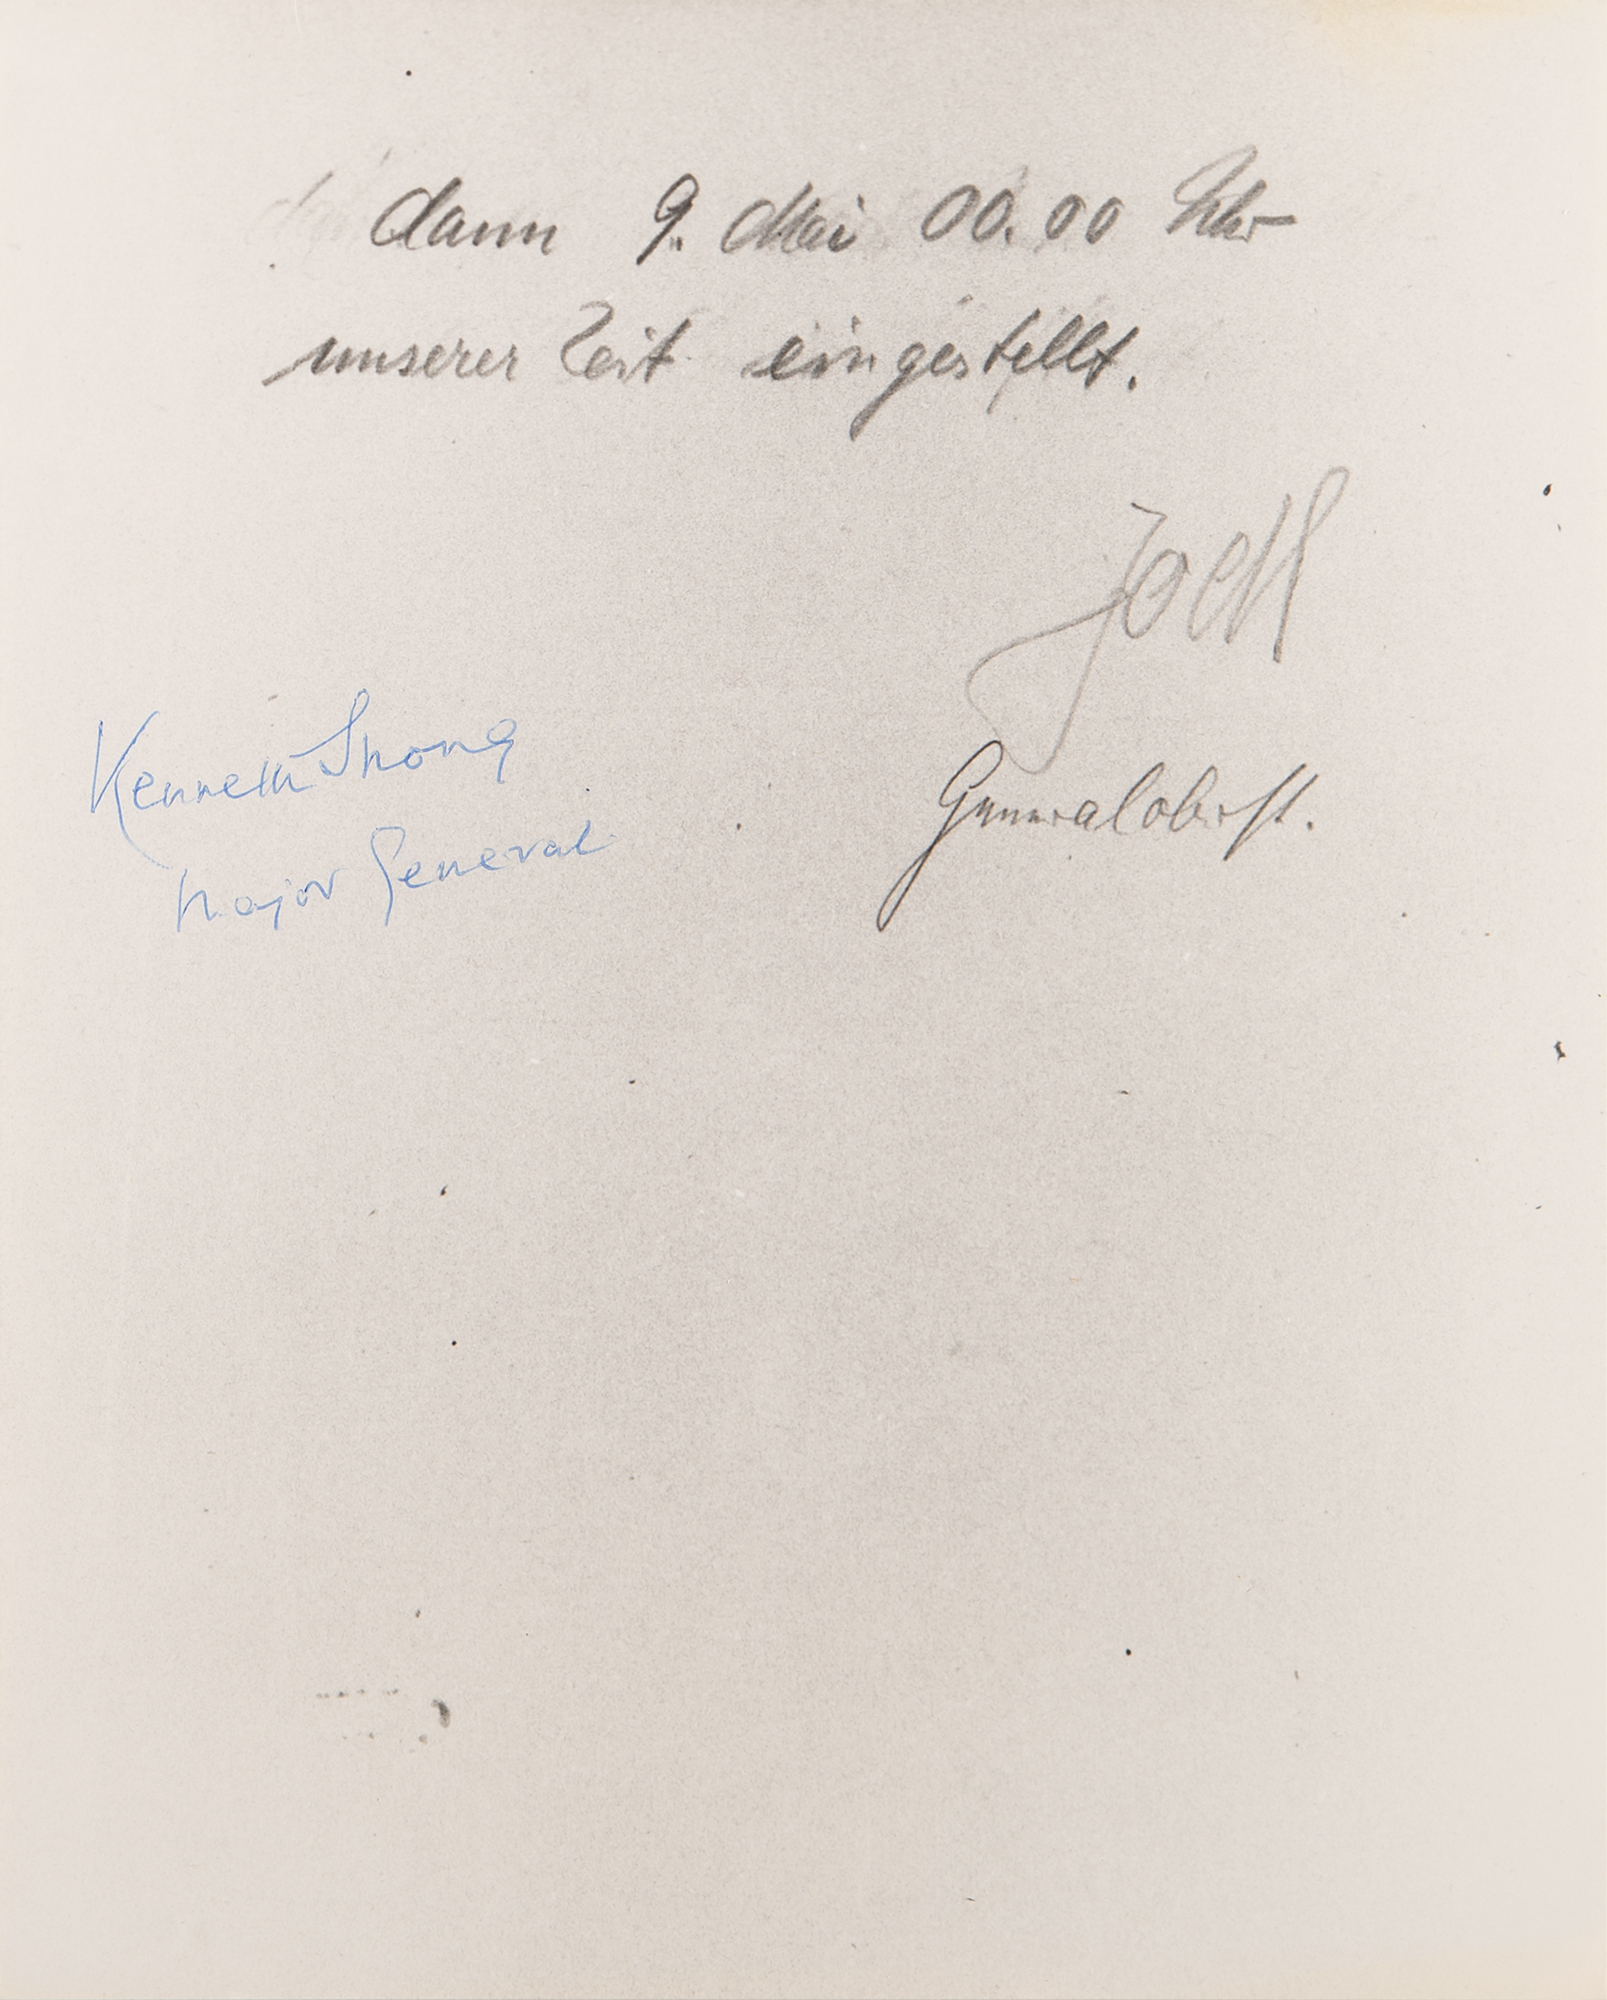 dann 9. Mai 00.00 Uhr
unserer Zeit eingestellt.
Jodl
Kenneth Strong
Major General
Generaloberst.